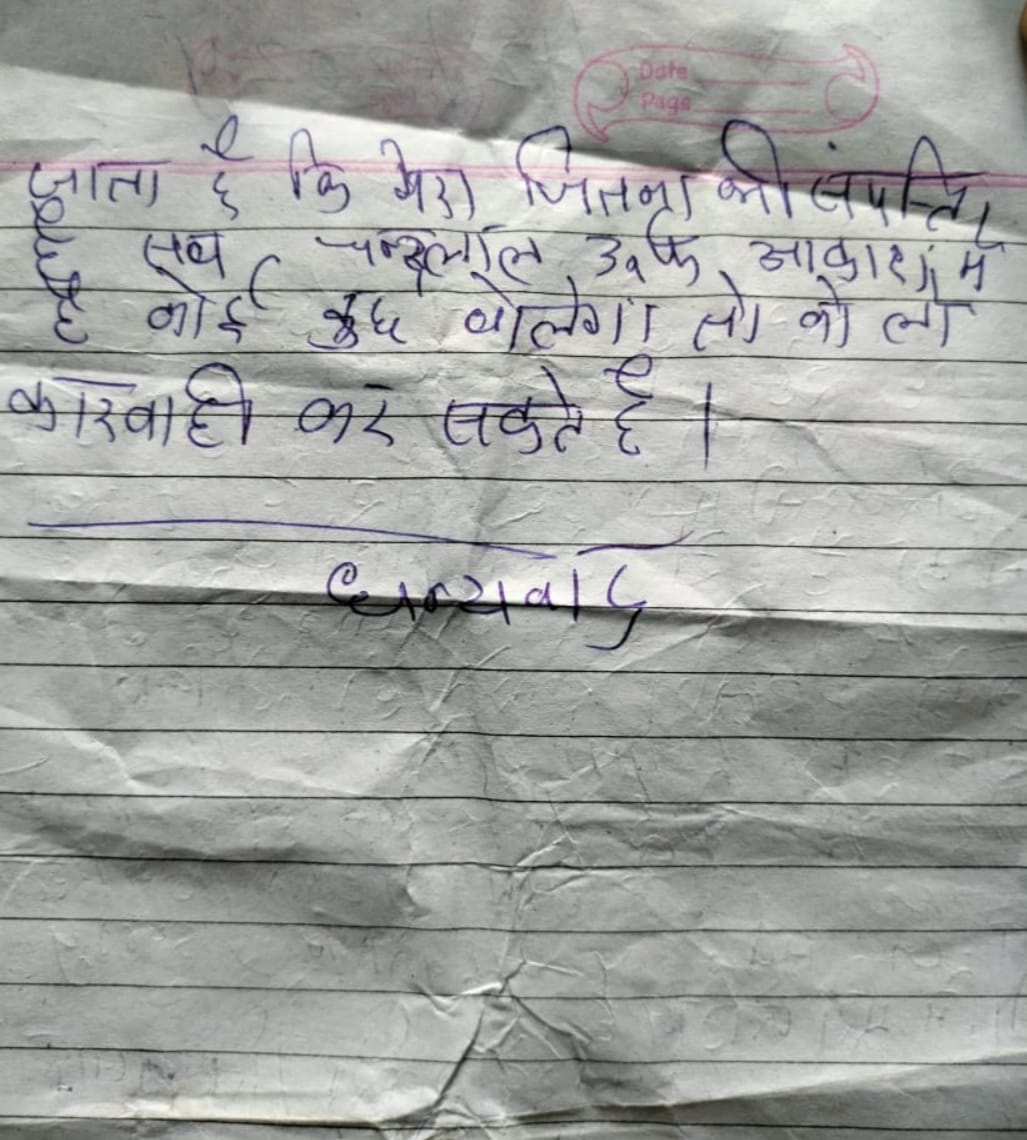 Date
Page
जाता है कि मेरा जितना भी संपत्ति
सब चन्दूलाल उर्फ आकाश में
है कोई कुछ बोलेगा तो को लो
कारवाही कर सकते है |
धन्यवाद